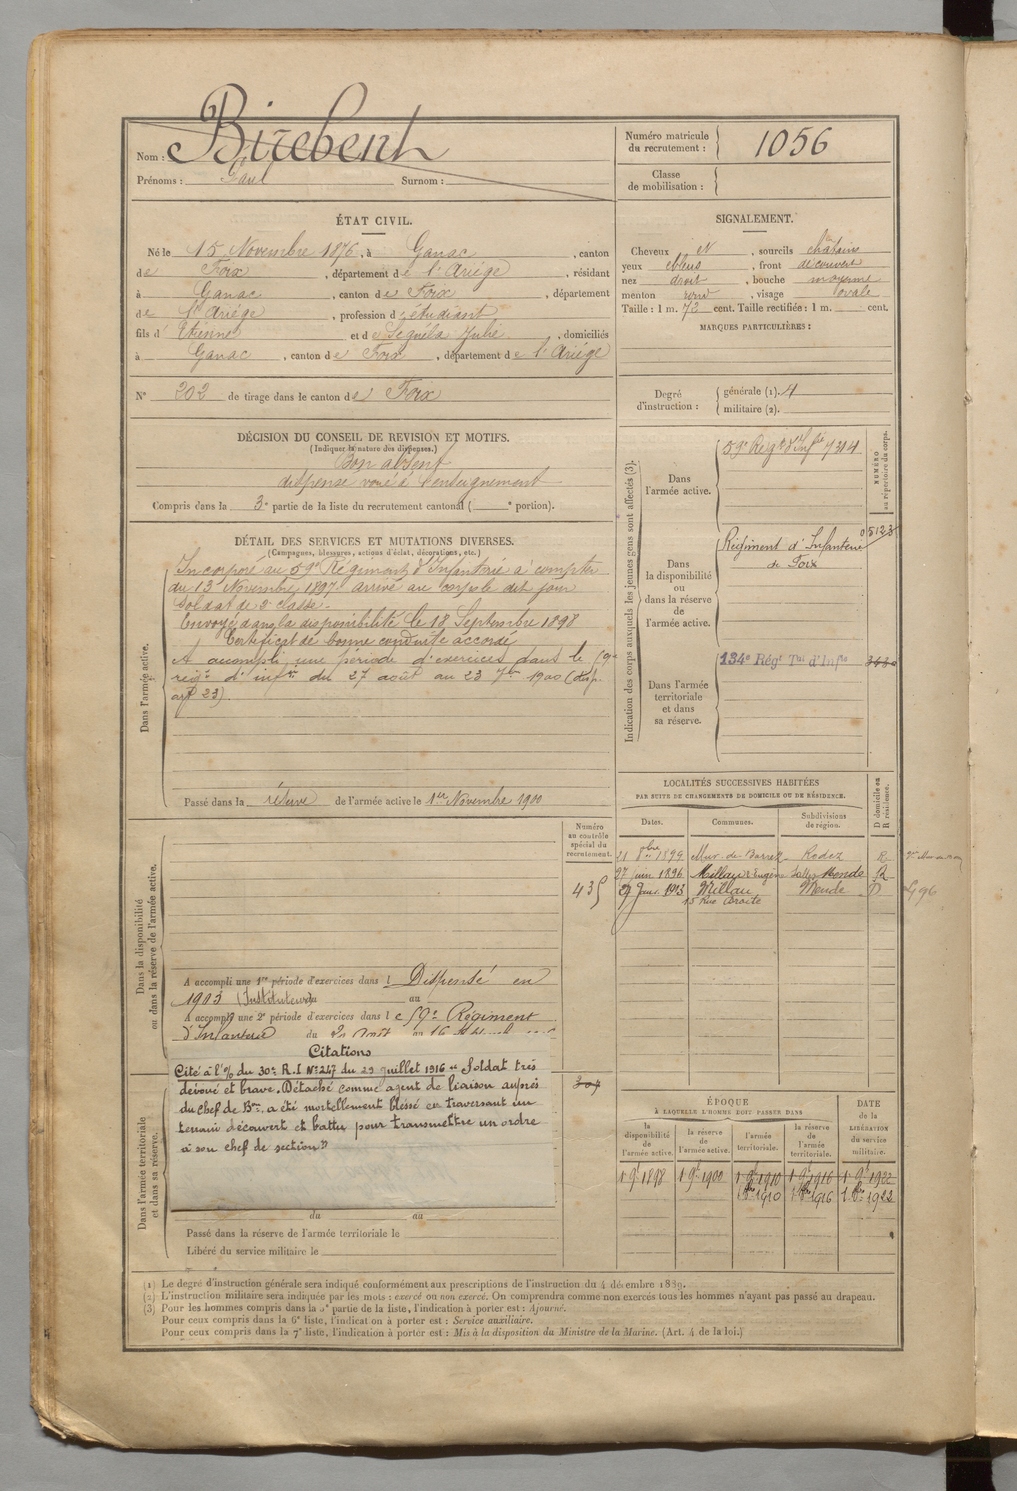 Nom : Birebent
Prénoms : Paul Surnom :
Numéro matricule du recrutement : 1056
Classe de mobilisation :
ÉTAT CIVIL.
Né le 15 Novembre 1876, à Ganac, canton
de Foix, département de l'Ariége, résidant
à Ganac, canton de Foix, département
de l'Ariége, profession d'étudiant
fils d'Etienne et de Seguéla Julie, domiciliés
à Ganac, canton de Foix, département de l'Ariége
N° 202 de tirage dans le canton de Foix
SIGNALEMENT.
Cheveux et, sourcils châtains
yeux bleus, front découvert
nez droit, bouche moyenne
menton rond, visage ovale
Taille : 1 m. 72 cent. Taille rectifiée : 1 m. cent.
MARQUES PARTICULIÈRES :
Degré d'instruction :
générale (1). 4
militaire (2).
DÉCISION DU CONSEIL DE REVISION ET MOTIFS.
(Indiquer la nature des dispenses.)
Bon absent
dispensé voué à l'enseignement
Compris dans la 3e partie de la liste du recrutement cantonal ( e portion).
DÉTAIL DES SERVICES ET MUTATIONS DIVERSES.
(Campagnes, blessures, actions d'éclat, décorations, etc.)
Dans l'armée active.
Incorporé au 59e Régiment d'Infanterie à compter
du 13 Novembre 1897 arrivé au corps le dit jour
Soldat de 2e classe.
Envoyé dans la disponibilité le 18 Septembre 1898
Certificat de bonne conduite accordé
A accompli une période d'exercices dans le 59e
régt d'infrie du 27 août au 23 7bre 1900 (disp.
art 23)
Passé dans la réserve de l'armée active le 1er Novembre 1900
Indication des corps auxquels les jeunes gens sont affectés (3).
NUMÉRO au répertoire du corps.
Dans l'armée active.
59e Régt d'Infie 7314
Dans la disponibilité ou dans la réserve de l'armée active.
Régiment d'Infanterie
de Foix
05123
Dans l'armée territoriale et dans sa réserve.
134e Régt Tal d'Infie
LOCALITÉS SUCCESSIVES HABITÉES
PAR SUITE DE CHANGEMENTS DE DOMICILE OU DE RÉSIDENCE.
Dates. Communes. Subdivisions de région. D domicile ou R résidence.
21 8bre 1899 Mur-de-Barrez Rodez R
27 juin 1896 Millau Mende R
29 Janv. 1913 Millau Mende D
15 Rue Droite
Dans la disponibilité ou dans la réserve de l'armée active.
Numéro au contrôle spécial du recrutement.
435
A accompli une 1re période d'exercices dans l Dispensé en
1903 (Instituteur) du au
A accompli une 2e période d'exercices dans le 59e Régiment
d'Infanterie du au
Citations
Cité à l'% du 30e R.I N° 247 du 29 juillet 1916 "Soldat très
dévoué et brave. Détaché comme agent de liaison auprès
du chef de Bon, a été mortellement blessé en traversant un
terrain découvert et battu pour transmettre un ordre
à son chef de section"
Dans l'armée territoriale et dans sa réserve.
du au
Passé dans la réserve de l'armée territoriale le
Libéré du service militaire le
ÉPOQUE
À LAQUELLE L'HOMME DOIT PASSER DANS
la disponibilité de l'armée active. la réserve de l'armée active. l'armée territoriale. la réserve de l'armée territoriale. DATE de la LIBÉRATION du service militaire.
1 9bre 1898 1 9bre 1900 1 9bre 1910 1 9bre 1916 1 9bre 1922
1 8bre 1910 1 8bre 1916 1 8bre 1922
(1) Le degré d'instruction générale sera indiqué conformément aux prescriptions de l'instruction du 4 décembre 1889.
(2) L'instruction militaire sera indiquée par les mots : exercé ou non exercé. On comprendra comme non exercés tous les hommes n'ayant pas passé au drapeau.
(3) Pour les hommes compris dans la 5e partie de la liste, l'indication à porter est : Ajourné.
Pour ceux compris dans la 6e liste, l'indication à porter est : Service auxiliaire.
Pour ceux compris dans la 7e liste, l'indication à porter est : Mis à la disposition du Ministre de la Marine. (Art. 4 de la loi.)